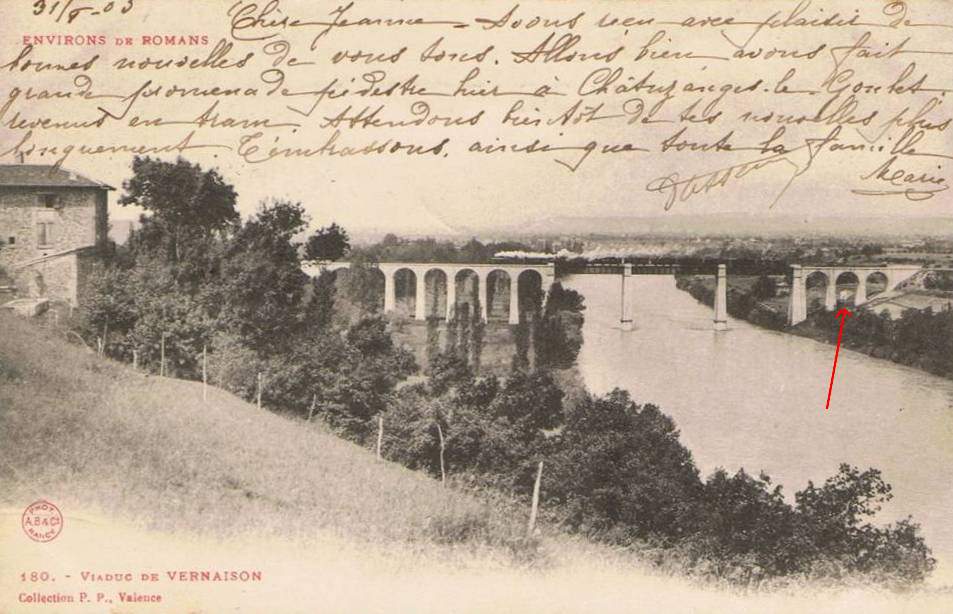 31/8-03 Chère Jeanne - Avons reçu avec plaisir de
ENVIRONS DE ROMANS
bonnes nouvelles de vous tous. Allons bien avons fait
grande promenade pédestre hier à Châtuzanges-le-Goubet.
revenus en tram. Attendons bientôt de tes nouvelles plus
longuement. T'embrassons, ainsi que toute la famille
Marie
PHOT.
A.B & Cie
NANCY
180. - VIADUC DE VERNAISON
Collection P. P., Valence